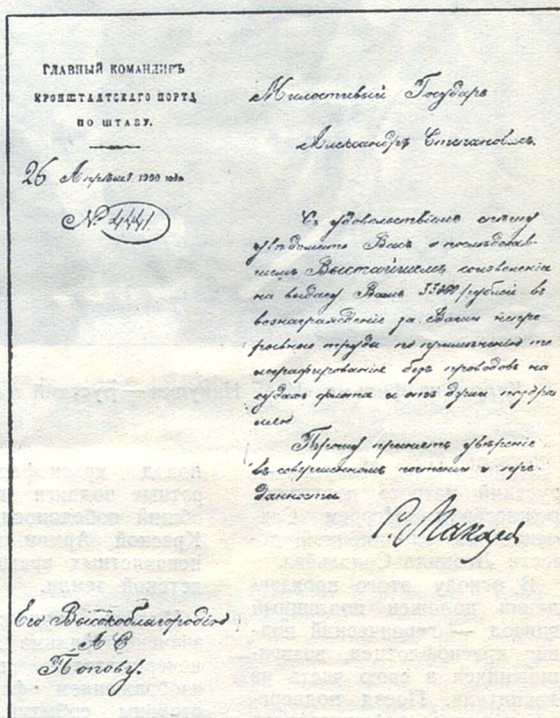 ГЛАВНЫЙ КОМАНДИРЪ
КРОНШТАДТСКАГО ПОРТА
ПО ШТАБУ.
26 Апрѣля 1900 года
№ 4441
Милостивый Государь
Александръ Степановичъ.
Съ удовольствіемъ спѣшу
увѣдомить Васъ о послѣдовав-
шемъ Высочайшемъ соизволеніи
на выдачу Вамъ 33000 рублей въ
вознагражденіе за Ваши непре-
рывные труды по примѣненію те
леграфированія безъ проводовъ на
судахъ флота и отъ души поздра
вляю
Прошу принять увѣреніе
въ совершенномъ почтеніи и пре
данности
С Макаров
Его Высокоблагородію
А С
Попову.